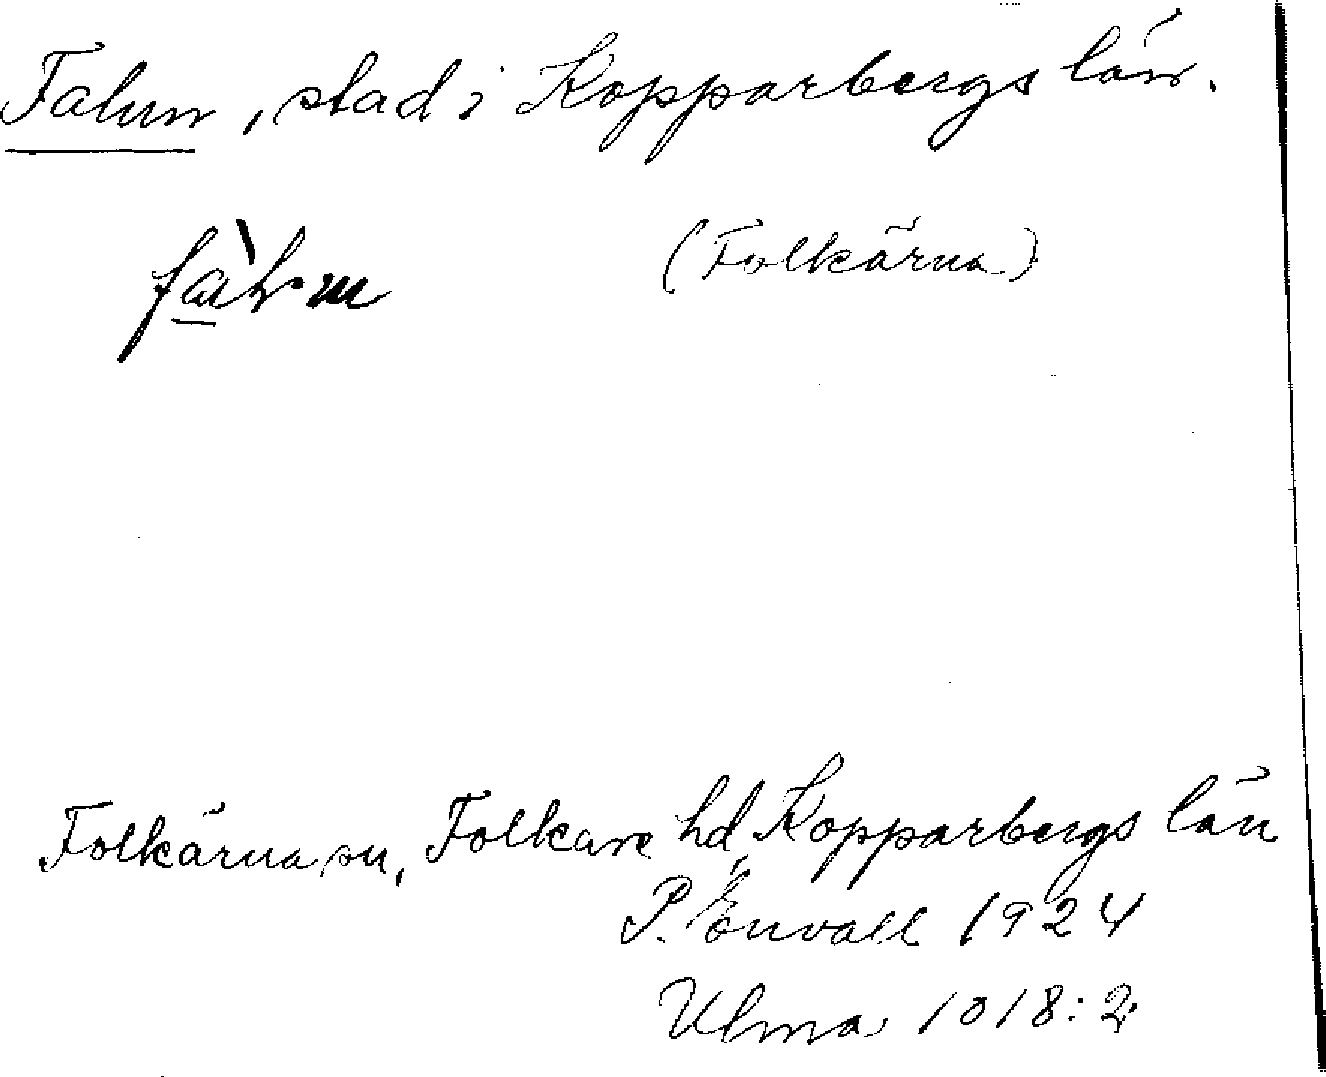 Falun, stad i Kopparbergs län.
(Folkärna)
Folkärna sn, Folkare hd, Kopparbergs län
P. Envall 1924
Ulma 1018:2